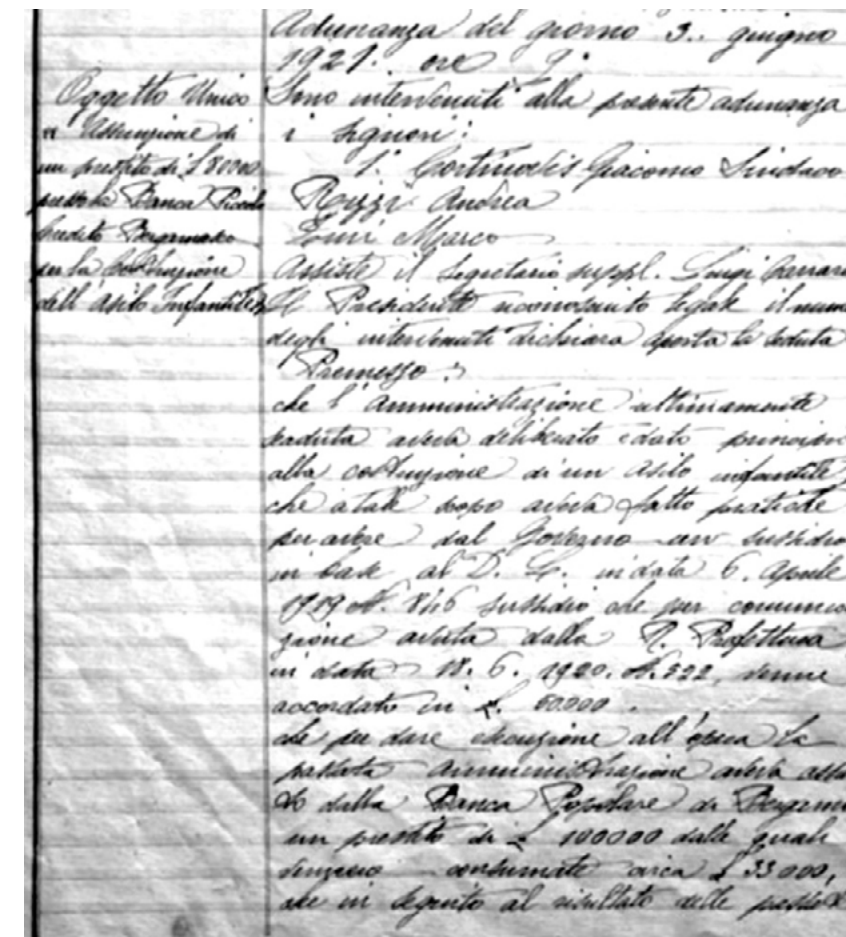 Adunanza del giorno 3. giugno
1921. ore 9.
Oggetto Unico
Assunzione di
un prestito di £ 80000
presso la Banca Piccolo
Credito Bergamasco
per la costruzione
dell'asilo Infantile
Sono intervenuti alla presente adunanza
i Signori:
1. Giacomo Sindaco
Rizzi Andrea
Marco
Assiste il Segretario suppl. Luigi
Il Presidente riconosciuto legale il nume
degli intervenuti dichiara aperta la seduta
Premesso:
che l'amministrazione ultimamente
scaduta aveva deliberato e dato principio
alla costruzione di un asilo infantile
che a tale scopo aveva fatto pratiche
per avere dal Governo un sussidio
in base al D. L. in data 6. Aprile
1919 N. sussidio che per comunica
zione avuta dalla R. Prefettura
in data 18. 6. 1920. N. 522, venne
accordato in £. 60000.
che per dare esecuzione all'opera la
passata amministrazione aveva assu
to dalla Banca Popolare di Bergamo
un prestito di £ 100000 dalle quali
vennero consumate circa £ 33000,
che in seguito al risultato delle